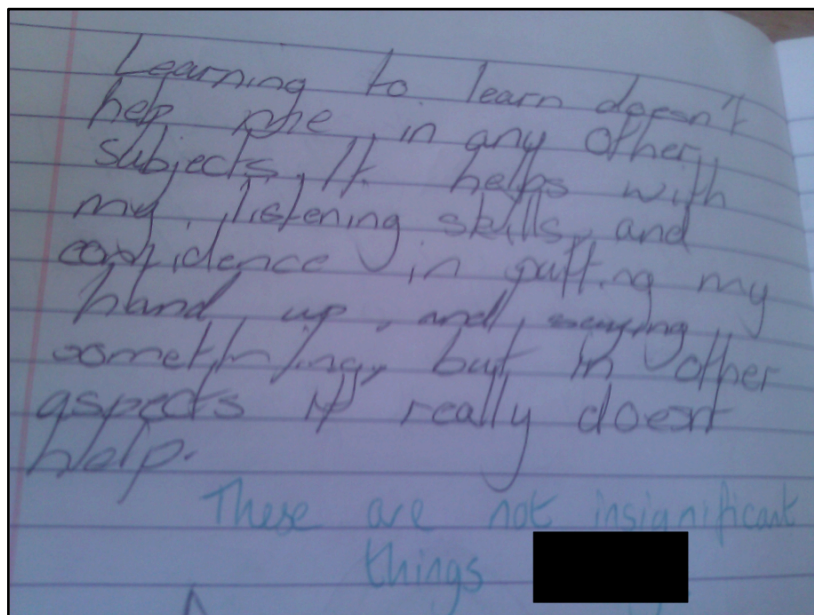 Learning to learn doesn't
help me in any other
subjects. It helps with
my listening skills, and
confidence in putting my
hand up, and saying
something, but in other
aspects it really doesnt
help.
These are not insignificant
things